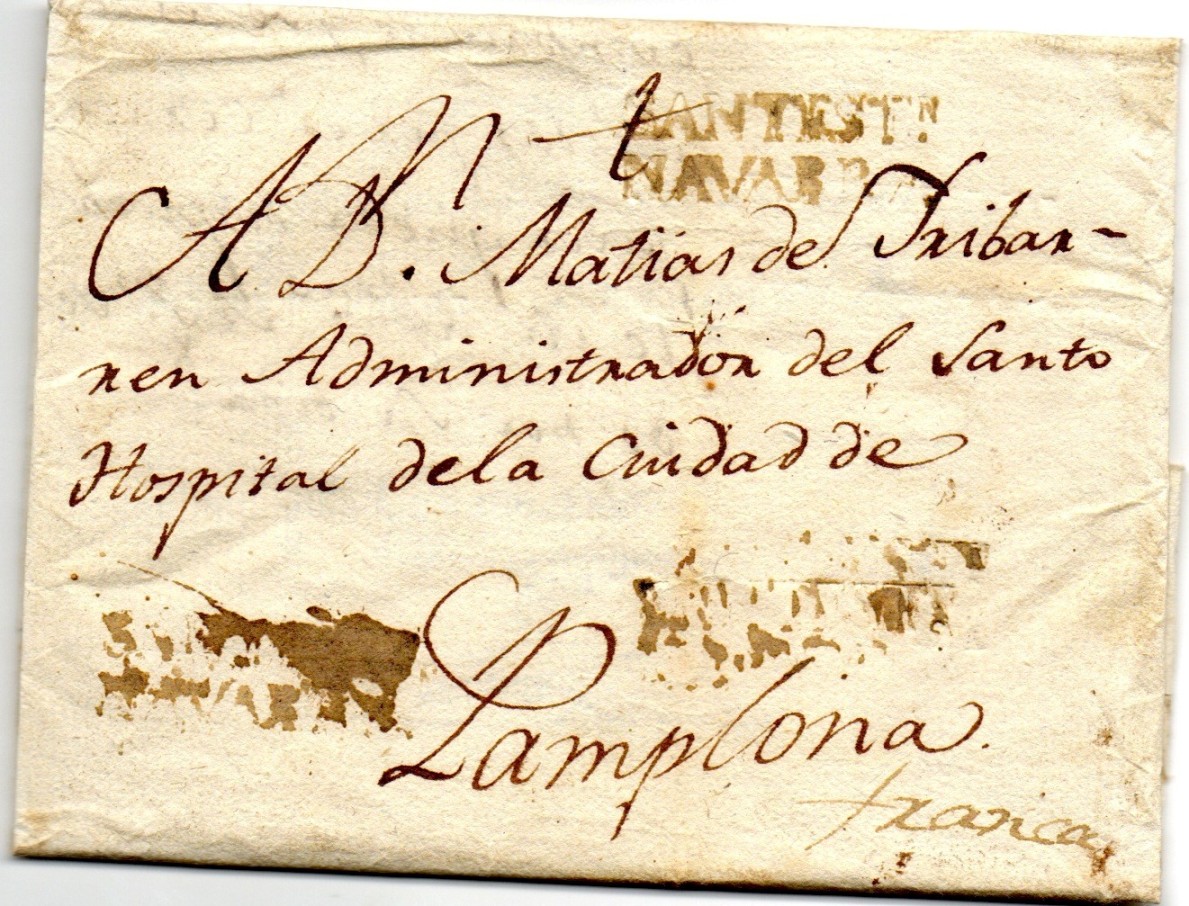 SANTEST.N
NAVARRA
A Dn. Matias de Iribar-
ren Administrador del Santo
Hospital dela Ciudad de
Pamplona.
franca